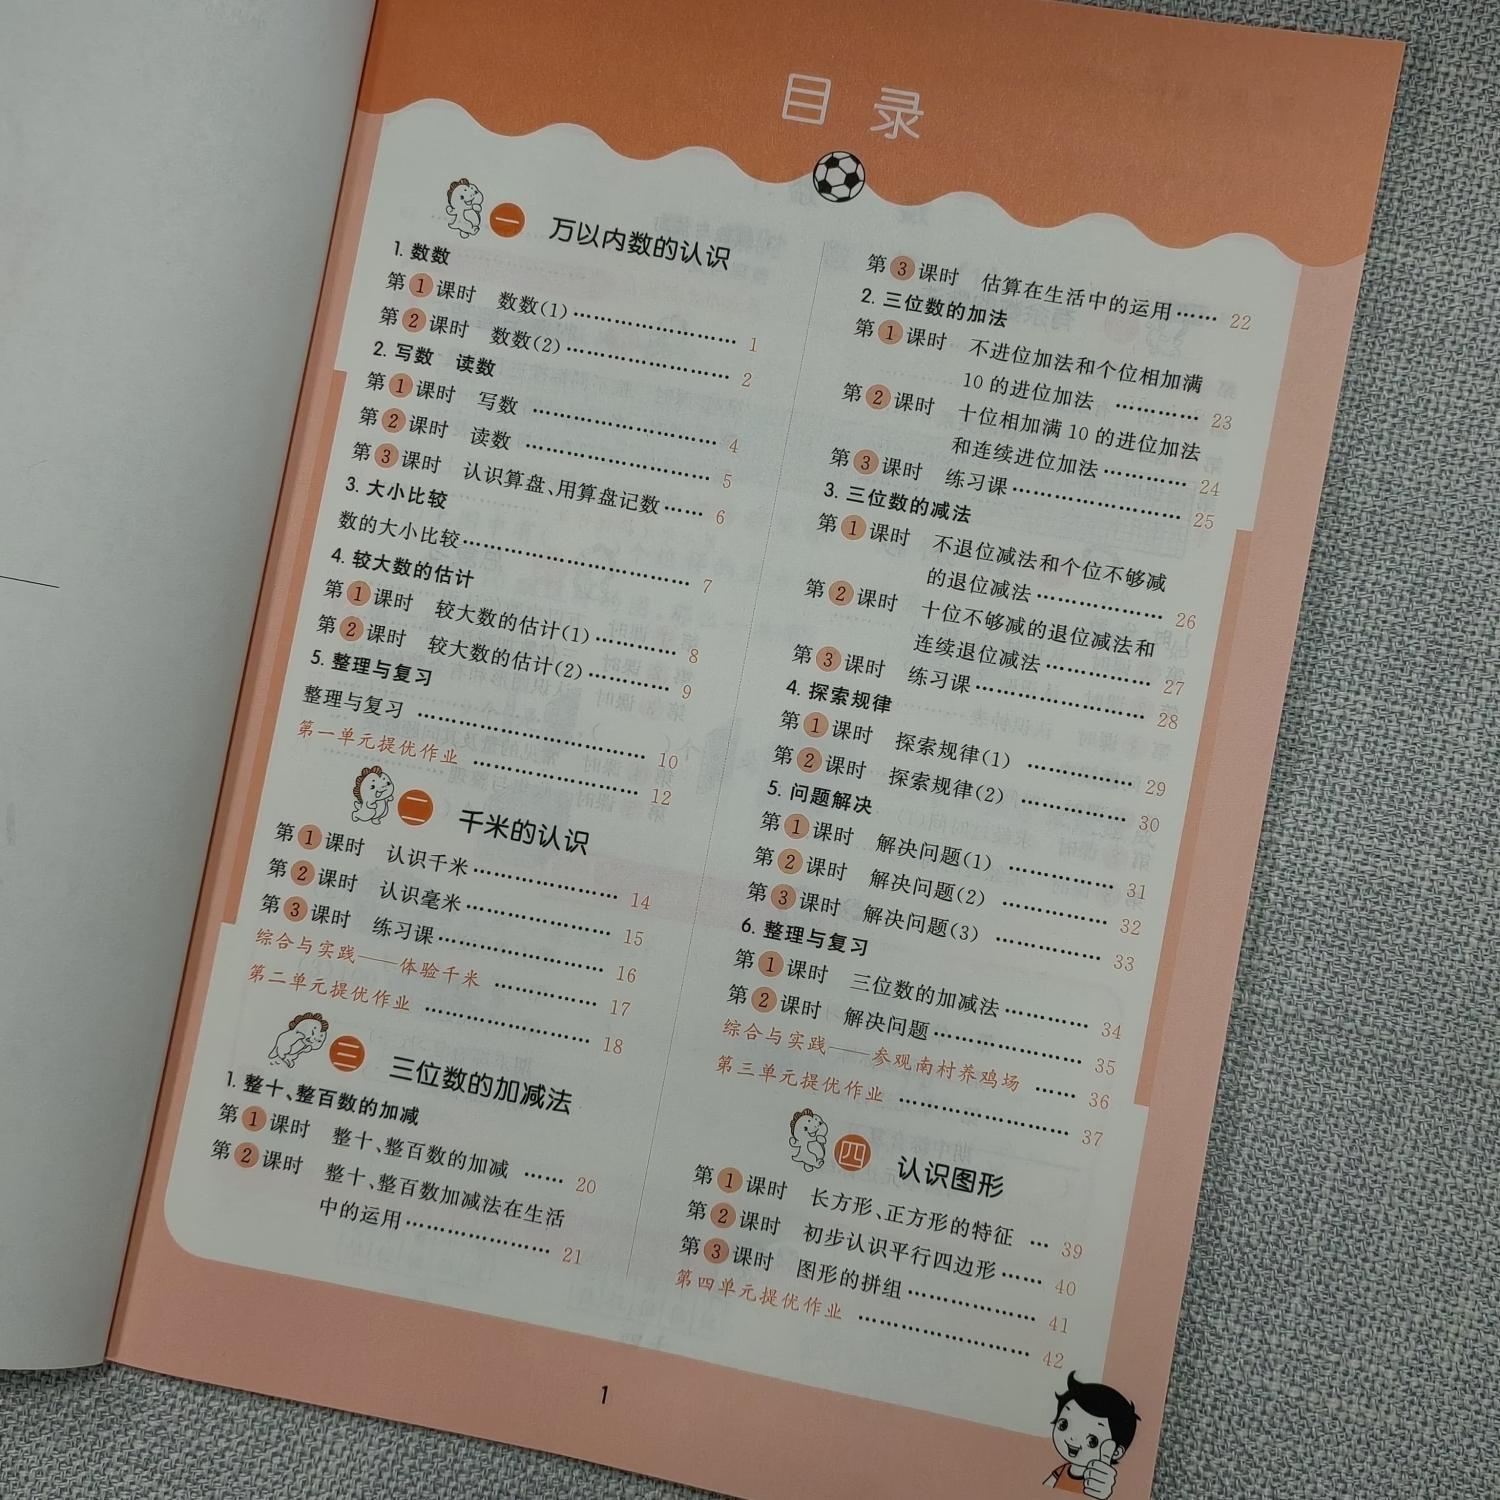 目录
一 万以内数的认识
1. 数数
第1课时 数数(1)……………………… 1
第2课时 数数(2)……………………… 2
2. 写数 读数
第1课时 写数 ……………………… 4
第2课时 读数 ……………………… 5
第3课时 认识算盘、用算盘记数…… 6
3. 大小比较
数的大小比较……………………… 7
4. 较大数的估计
第1课时 较大数的估计(1)………… 8
第2课时 较大数的估计(2)………… 9
5. 整理与复习
整理与复习 ……………………… 10
第一单元提优作业 ……………………… 12
二 千米的认识
第1课时 认识千米……………… 14
第2课时 认识毫米……………… 15
第3课时 练习课……………… 16
综合与实践——体验千米 ………… 17
第二单元提优作业 ……………… 18
三 三位数的加减法
1. 整十、整百数的加减
第1课时 整十、整百数的加减 …… 20
第2课时 整十、整百数加减法在生活
中的运用……………… 21
第3课时 估算在生活中的运用…… 22
2. 三位数的加法
第1课时 不进位加法和个位相加满
10的进位加法 ………… 23
第2课时 十位相加满10的进位加法
和连续进位加法………… 24
第3课时 练习课……………… 25
3. 三位数的减法
第1课时 不退位减法和个位不够减
的退位减法……………… 26
第2课时 十位不够减的退位减法和
连续退位减法………… 27
第3课时 练习课……………… 28
4. 探索规律
第1课时 探索规律(1) ………… 29
第2课时 探索规律(2) ………… 30
5. 问题解决
第1课时 解决问题(1) ………… 31
第2课时 解决问题(2) ………… 32
第3课时 解决问题(3) ………… 33
6. 整理与复习
第1课时 三位数的加减法………… 34
第2课时 解决问题……………… 35
综合与实践——参观南村养鸡场 …… 36
第三单元提优作业 ……………… 37
四 认识图形
第1课时 长方形、正方形的特征 … 39
第2课时 初步认识平行四边形…… 40
第3课时 图形的拼组……………… 41
第四单元提优作业 ……………… 42
1